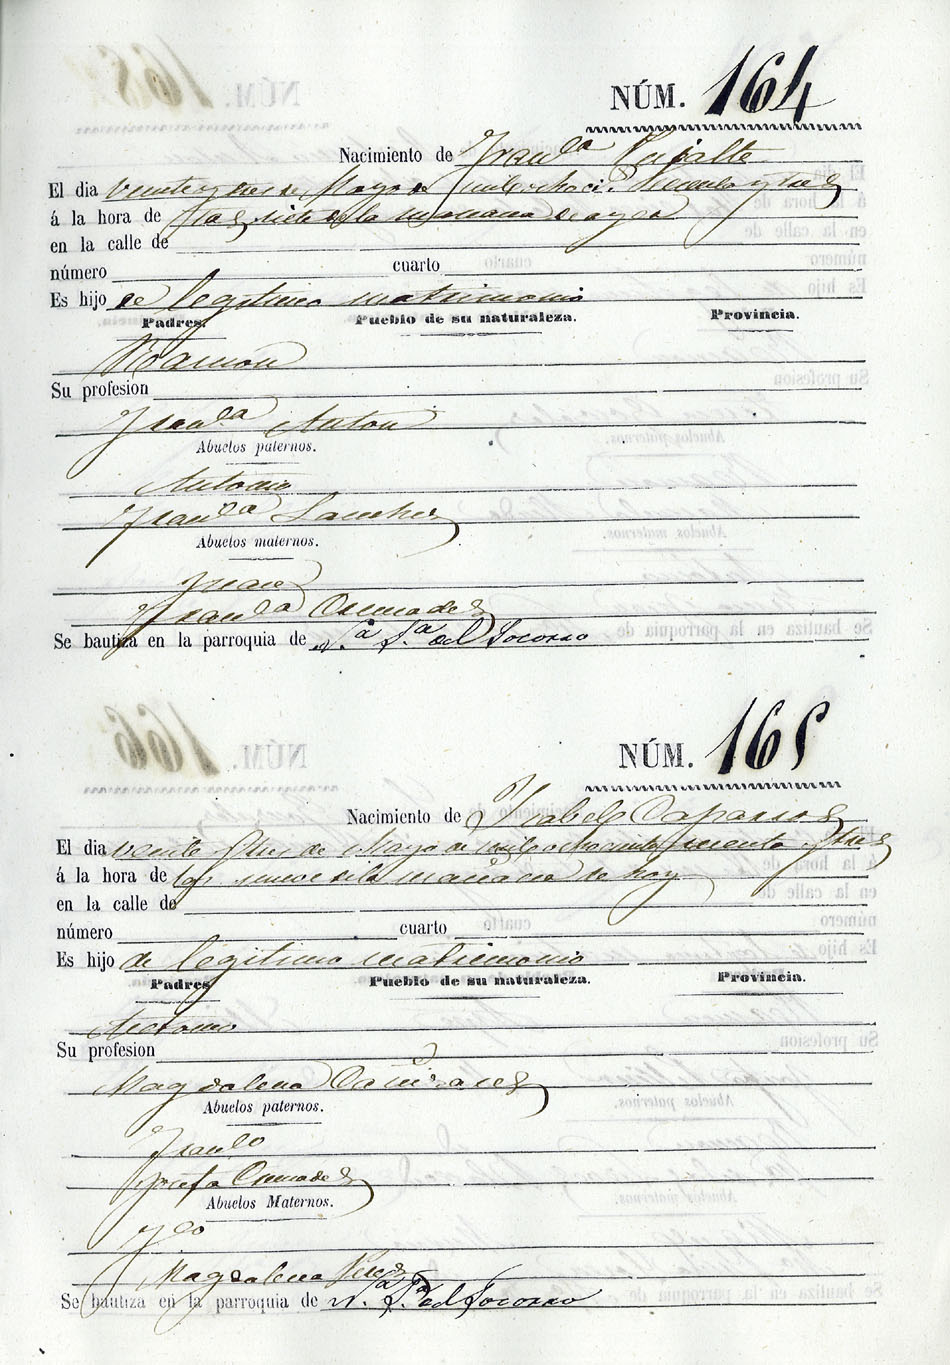 NÚM. 164
Nacimiento de Franca Pujalte
El dia veinte y tres de Mayo de mil ochoci. sesenta y tres
á la hora de las siete de la mañana de ayer
en la calle de
número cuarto
Es hijo de legitimo matrimonio
Padres. Pueblo de su naturaleza. Provincia.
Ramon
Su profesion
Franca Anton
Abuelos paternos.
Antonio
Franca Sanchez
Abuelos maternos.
Juan
Franca Cremades
Se bautiza en la parroquia de Na. Sa. del Socorro
NÚM. 165
Nacimiento de Isabel Caparros
El dia veinte tres de Mayo de mil ochocientos sesenta y tres
á la hora de las nueve de la mañana de hoy
en la calle de
número cuarto
Es hijo de legitimo matrimonio
Padres. Pueblo de su naturaleza. Provincia.
Antonio
Su profesion
Magdalena Cañizares
Abuelos paternos.
Franco
Josefa Cremades
Abuelos Maternos.
Magdalena Perez
Se bautiza en la parroquia de Na. Sa. del Socorro